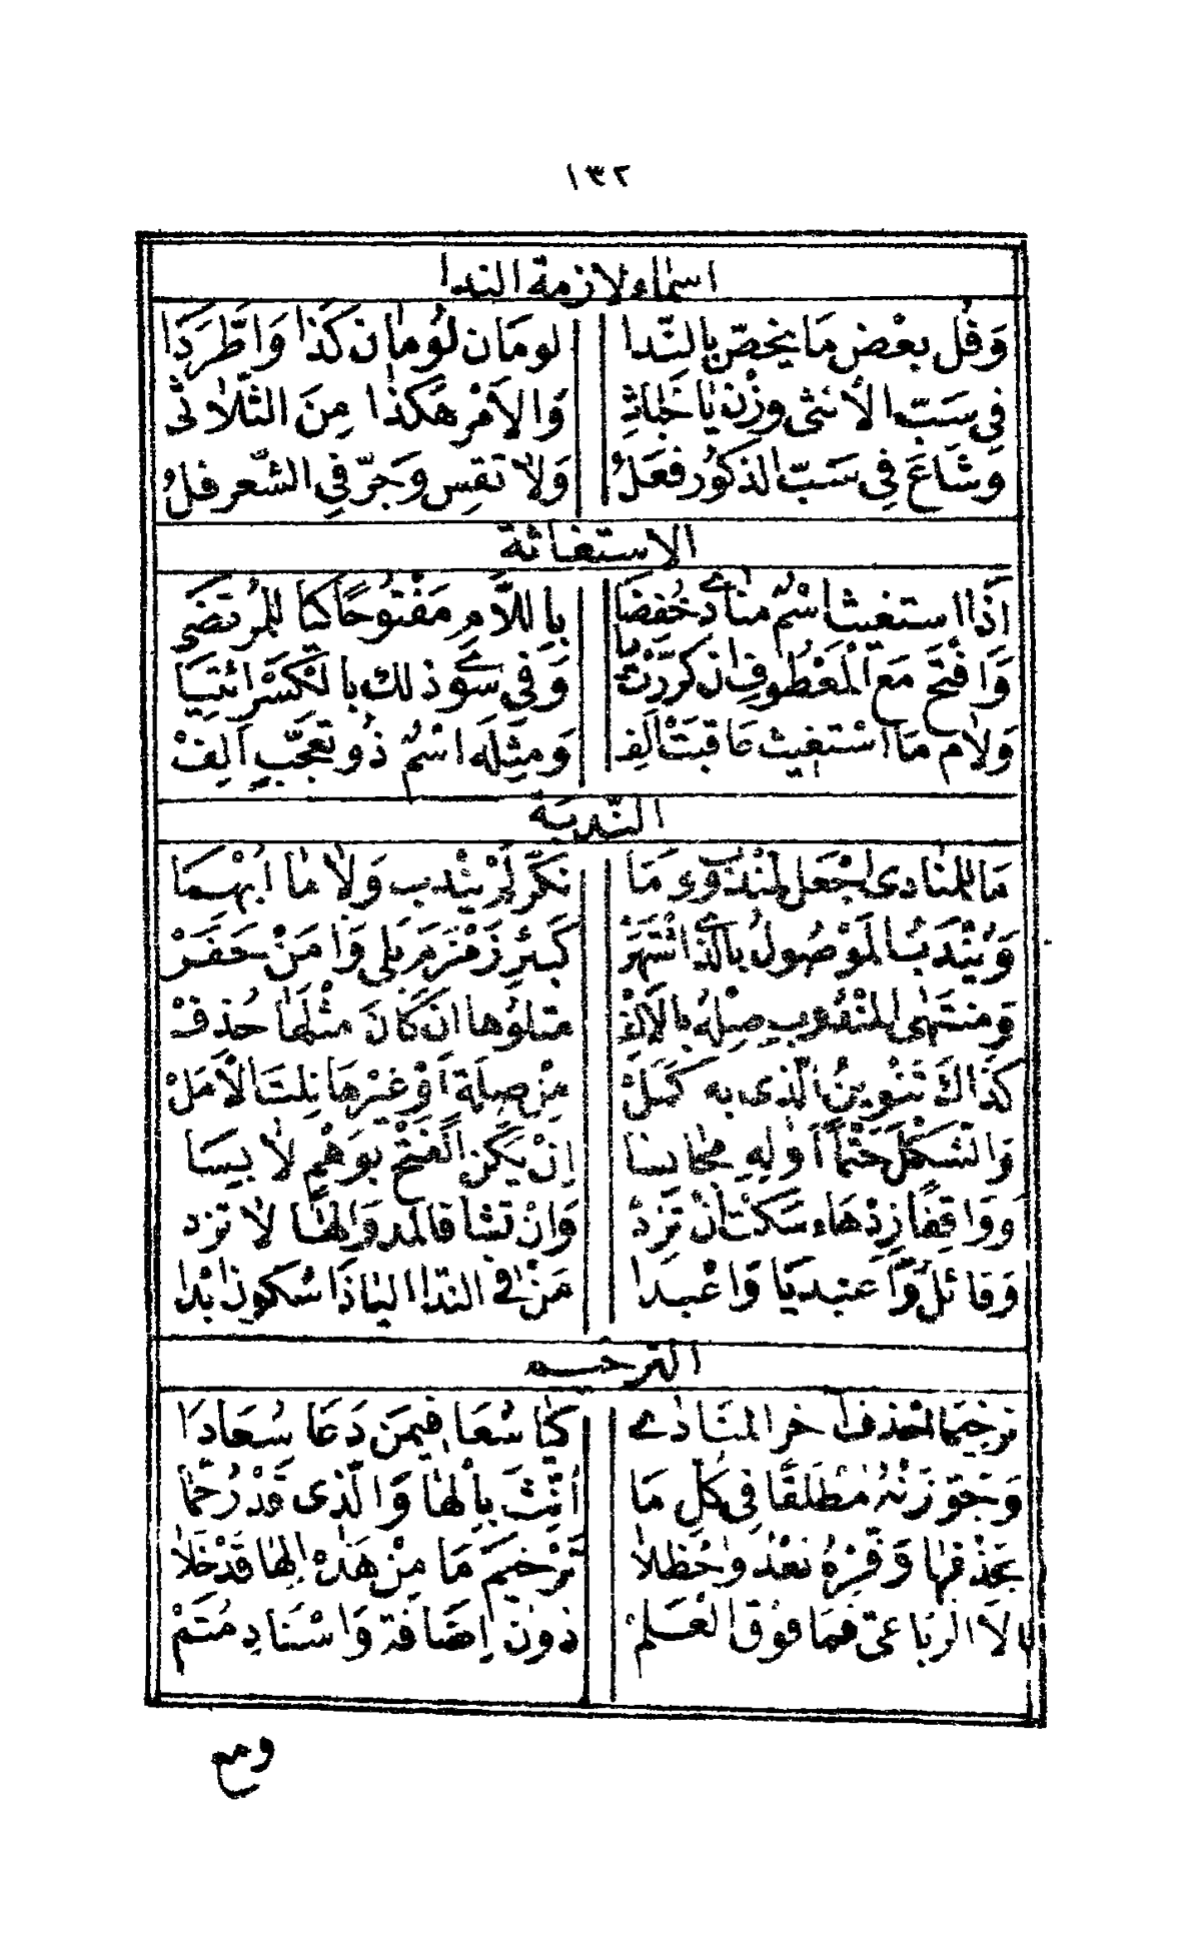 ١٣٢
اسماء لازمة الندا
وَفُل بعْض مَا يخصّ بالنّدا لومَان نومان كذا وَاطّرَدَا
فى سَبّ الأنثى وزن يا خباثِ وَالامْر هكذا مِنَ الثّلاثى
وَشاعَ فى سَبّ الذكور فعَلُ وَلا تقِس وَجرّ فى الشّعر فلُ
الاستغاثة
اذا استغيث اسْمٌ منادى خُفِضَا باللّام مَفْتُوحًا كيا للمُرتضى
وَافْتح مَعَ الْمَعْطوف ان كرّرْت يا وَفى سوى ذلك بالكسْر ائتيا
وَلام مَا اسْتغيث عاقبَتْ الف وَمثله اسْمٌ ذو تعجّبٍ الفْ
النّدبة
مَا للمنادى اجْعَل لمنْدوب وَمَا نكّر لمْ يندب وَلا ما ابْهمَا
وَيُنْدَبُ المَوْصُولُ بالّذى اشْتَهَرْ كبئر زَمْزمَ يلى وَا مَنْ حَفَرْ
وَمنتهى المنْدوب صِلْهُ بالالِفْ متلوّها ان كانَ مثْلَها حُذفْ
كذاكَ تَنْوينُ الّذى به كمَلْ مِنْ صِلَة أوْ غيْرهَا نلتَ الأمَلْ
وَالشّكْلَ حَتْمًا أوْلِهِ مجانسا إنْ يَكُن الفتْح بوَهْمٍ لابِسَا
وَوَاقِفًا زدْ هَاء سَكْت انْ تردْ وَانْ تشا فالمد وَالها لا تزد
وَقائلٌ وَا عبديا وَا عْبدا مَنْ فى النّدا اليا ذَا سُكون ابْدا
الترخيم
ترْخيمًا احْذف آخر المنَادى كيا سُعَا فيمَن دَعَا سُعَادَا
وَجَوّزَنْهُ مُطْلَقًا فى كل مَا أنّثَ بالها وَالّذى قدْ رُخّما
بحذفها وَفّرْهُ بعْدُ وَاحْظلا ترْخيمَ مَا مِنْ هَذه الها قدْ خَلا
الّا الرّبَاعىّ فمَا فوْق العَلمْ دونَ إضَافة وَاسْنادٍ مُتَمْ
ومع